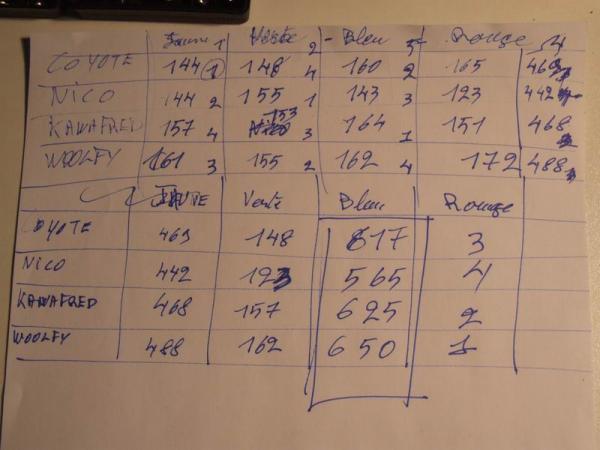 Jaune 1 Verte 2 Bleu 3 Rouge 4
COYOTE 144 1 148 4 160 2 165 463
NICO 144 2 155 1 143 3 123 442
KAWAFRED 157 4 153 3 164 1 151 468
WOOLFY 161 3 155 2 162 4 172 488
Verte Bleu Rouge
COYOTE 463 148 617 3
NICO 442 123 565 4
KAWAFRED 468 157 625 2
WOOLFY 488 162 650 1